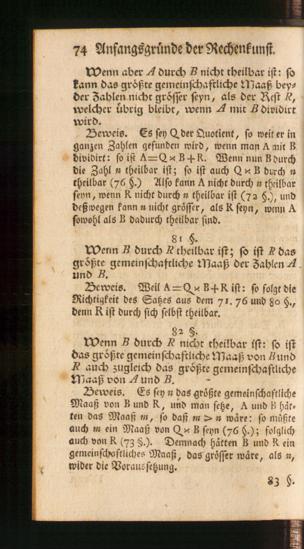 74 Anfangsgründe der Rechenkunst.
Wenn aber A durch B nicht theilbar ist: so
kann das größte gemeinschaftliche Maaß bey-
der Zahlen nicht grösser seyn, als der Rest R,
welcher übrig bleibt, wenn A mit B dividirt
wird.
Beweis. Es sey Q der Quotient, so weit er in
ganzen Zahlen gefunden wird, wenn man A mit B
dividirt: so ist A=Q×B+R. Wenn nun B durch
die Zahl n theilbar ist; so ist auch Q×B durch n
theilbar (76 §.) Also kann A nicht durch n theilbar
seyn, wenn R nicht durch n theilbar ist (72 §.), und
deßwegen kann n nicht grösser, als R seyn, wenn A
sowohl als B dadurch theilbar sind.
81 §.
Wenn B durch R theilbar ist; so ist R das
größte gemeinschaftliche Maaß der Zahlen A
und B.
Beweis. Weil A=Q×B+R ist: so folgt die
Richtigkeit des Satzes aus dem 71. 76 und 80 §.,
denn R ist durch sich selbst theilbar.
82 §.
Wenn B durch R nicht theilbar ist: so ist
das größte gemeinschaftliche Maaß von B und
R auch zugleich das größte gemeinschaftliche
Maaß von A und B.
Beweis. Es sey n das größte gemeinschaftliche
Maaß von B und R, und man setze, A und B hät-
ten das Maaß m, so daß m > n wäre: so müßte
auch m ein Maaß von Q×B seyn (76 §.); folglich
auch von R (73 §.). Demnach hätten B und R ein
gemeinschoftliches Maaß, das grösser wäre, als n,
wider die Voraussetzung.
83 §.